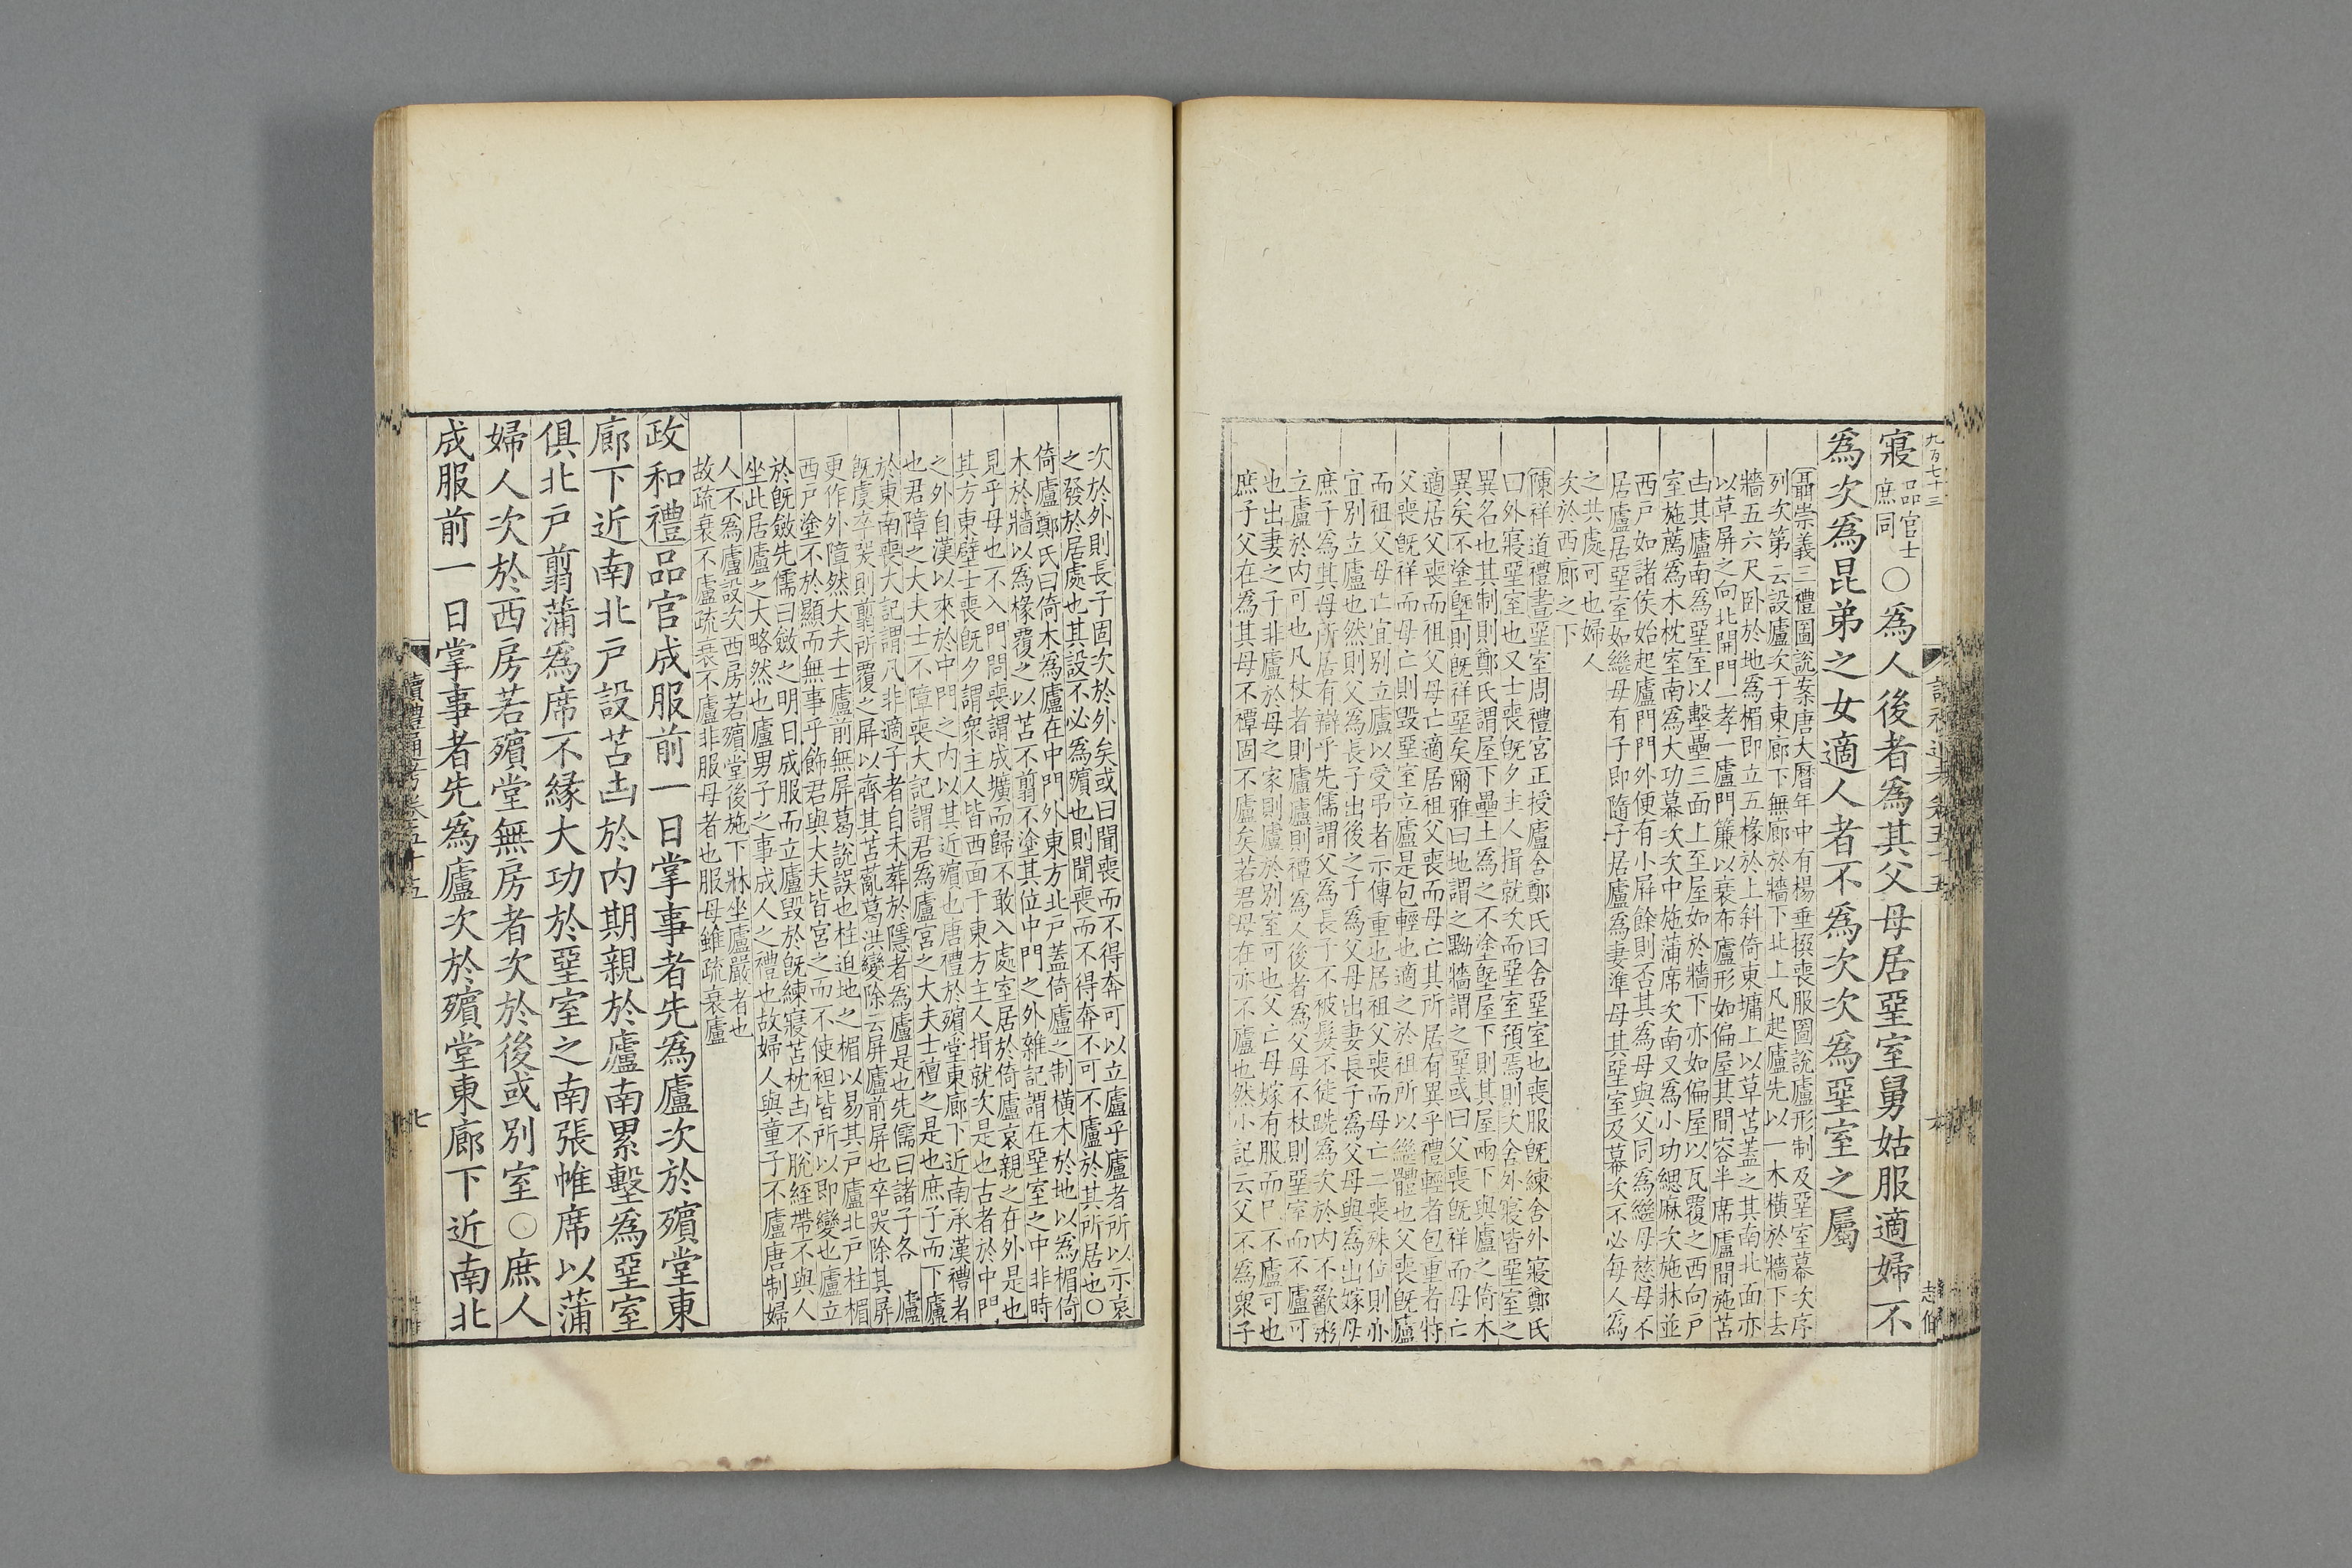 九百七十三
志伯
寢品官士庶同○爲人後者爲其父母居堊室舅姑服適婦不
爲次爲昆弟之女適人者不爲次次爲堊室之屬
聶崇義三禮圖說案唐大曆年中有楊垂撰喪服圖說廬形制及堊室幕次序
列次第云設廬次于東廊下無廊於牆下北上凡起廬先以一木橫於牆下去
牆五六尺卧於地爲楣即立五椽於上斜倚東墉上以草苫蓋之其南北面亦
以草屏之向北開門一孝一廬門簾以衰布廬形如偏屋其間容半席廬間施苫
凷其廬南爲堊室以墼壘三面上至屋如於牆下亦如偏屋以瓦覆之西向戸
室施薦爲木枕室南爲大功幕次次中施蒲席次南又爲小功緦麻次施牀並
西戸如諸侯始起廬門門外便有小屏餘則否其爲母與父同爲繼母慈母不
居廬居堊室如繼母有子即隨子居廬爲妻準母其堊室及幕次不必每人爲
之共處可也婦人
次於西廊之下
陳祥道禮書堊室周禮宮正授廬舍鄭氏曰舍堊室也喪服旣練舍外寢鄭氏
曰外寢堊室也又士喪旣夕主人揖就次而堊室預焉則次舍外寢皆堊室之
異名也其制則鄭氏謂屋下壘土爲之不塗墍屋下則其屋兩下與廬之倚木
異矣不塗墍則旣祥堊矣爾雅曰地謂之黝牆謂之堊或曰父喪旣祥而母亡
適居父喪而徂父母亡適居祖父喪而母亡其所居有異乎禮輕者包重者特
父喪旣祥而母亡則毀堊室立廬是包輕也適之於祖所以繼體也父喪旣廬
而祖父母亡宜別立廬以受弔者示傳重也居祖父喪而母亡二喪殊位則亦
宜別立廬也然則父爲長子出後之子爲父母出妻長子爲父母與爲出嫁母
庶子爲其母所居有辯乎先儒謂父爲長子不被髮不徒跣爲次於内不歠粥
立廬於内可也凡杖者則廬廬則禫爲人後者爲父母不杖則堊室而不廬可
也出妻之子非廬於母之家則廬於別室可也父亡母嫁有服而已不廬可也
庶子父在爲其母不禫固不廬矣若君母在亦不廬也然小記云父不爲衆子
次於外則長子固次於外矣或曰聞喪而不得奔可以立廬乎廬者所以示哀
之發於居處也其設不必爲殯也則聞喪而不得奔不可不廬於其所居也○
倚廬鄭氏曰倚木爲廬在中門外東方北戸蓋倚廬之制橫木於地以爲楣倚
木於牆以爲椽覆之以苫不翦不塗其位中門之外雜記謂在堊室之中非時
見乎母也不入門間喪謂成壙而歸不敢入處室居於倚廬哀親之在外是也
其方東壁士喪旣夕謂衆主人皆西面于東方主人揖就次是也古者於中門
之外自漢以來於中門之内以其近殯也唐禮於殯堂東廊下近南承漢禮者
也君障之大夫士不障喪大記謂君爲廬宮之大夫士襢之是也庶子而下廬
於東南喪大記謂凡非適子者自未葬於隱者爲廬是也先儒曰諸子各廬
旣虞卒哭則翦所覆之屏以齊其苫亂葛洪變除云屏廬前屏也卒哭除其屏
更作外障然大夫士廬前無屏葛說誤也柱迫地之楣以易其戸廬北戸柱楣
西戸塗不於顯而無事乎飾君與大夫皆宮之而不使袒皆所以即變也廬立
於旣斂先儒曰斂之明日成服而立廬毀於旣練寢苫枕凷不脫絰帶不與人
坐此居廬之大略然也廬男子之事成人之禮也故婦人與童子不廬唐制婦
人不爲廬設次西房若殯堂後施下牀坐廬嚴者也
故疏衰不廬疏衰不廬非服母者也服母雖疏衰廬
政和禮品官成服前一日掌事者先爲廬次於殯堂東
廊下近南北戸設苫凷於内期親於廬南累墼爲堊室
俱北戸翦蒲爲席不緣大功於堊室之南張帷席以蒲
婦人次於西房若殯堂無房者次於後或別室○庶人
成服前一日掌事者先爲廬次於殯堂東廊下近南北
讀禮通考卷五十五
七